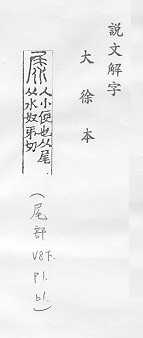 説文解字
大徐本
人小便也从尾
从水奴弔切
(尾部 V8下. P1. b1.)